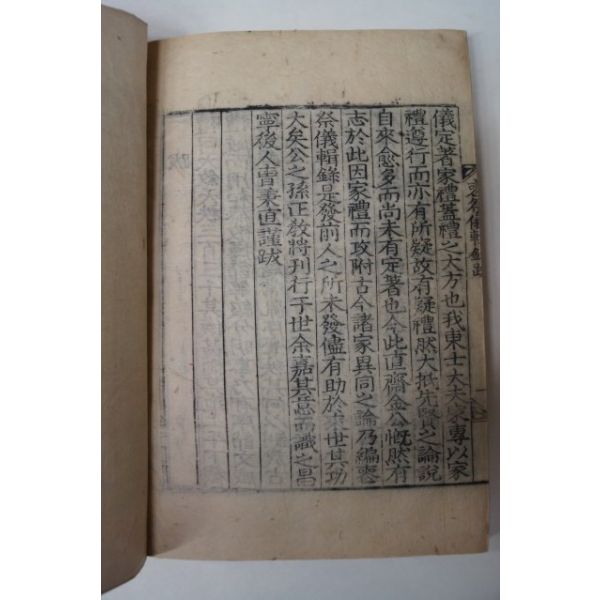 儀定著家禮蓋禮之大方也我東士大夫家專以家
禮遵行而亦有所疑故有疑禮然大抵先賢之論說
自來愈多而尚未有定著也今此直齋金公慨然有
志於此因家禮而攷附古今諸家異同之論乃編喪
祭儀輯錄是發前人之所未發儘有助於來世其功
大矣公之孫正教將刊行于世余嘉其志而識之昌
寧後人曺秉直謹跋